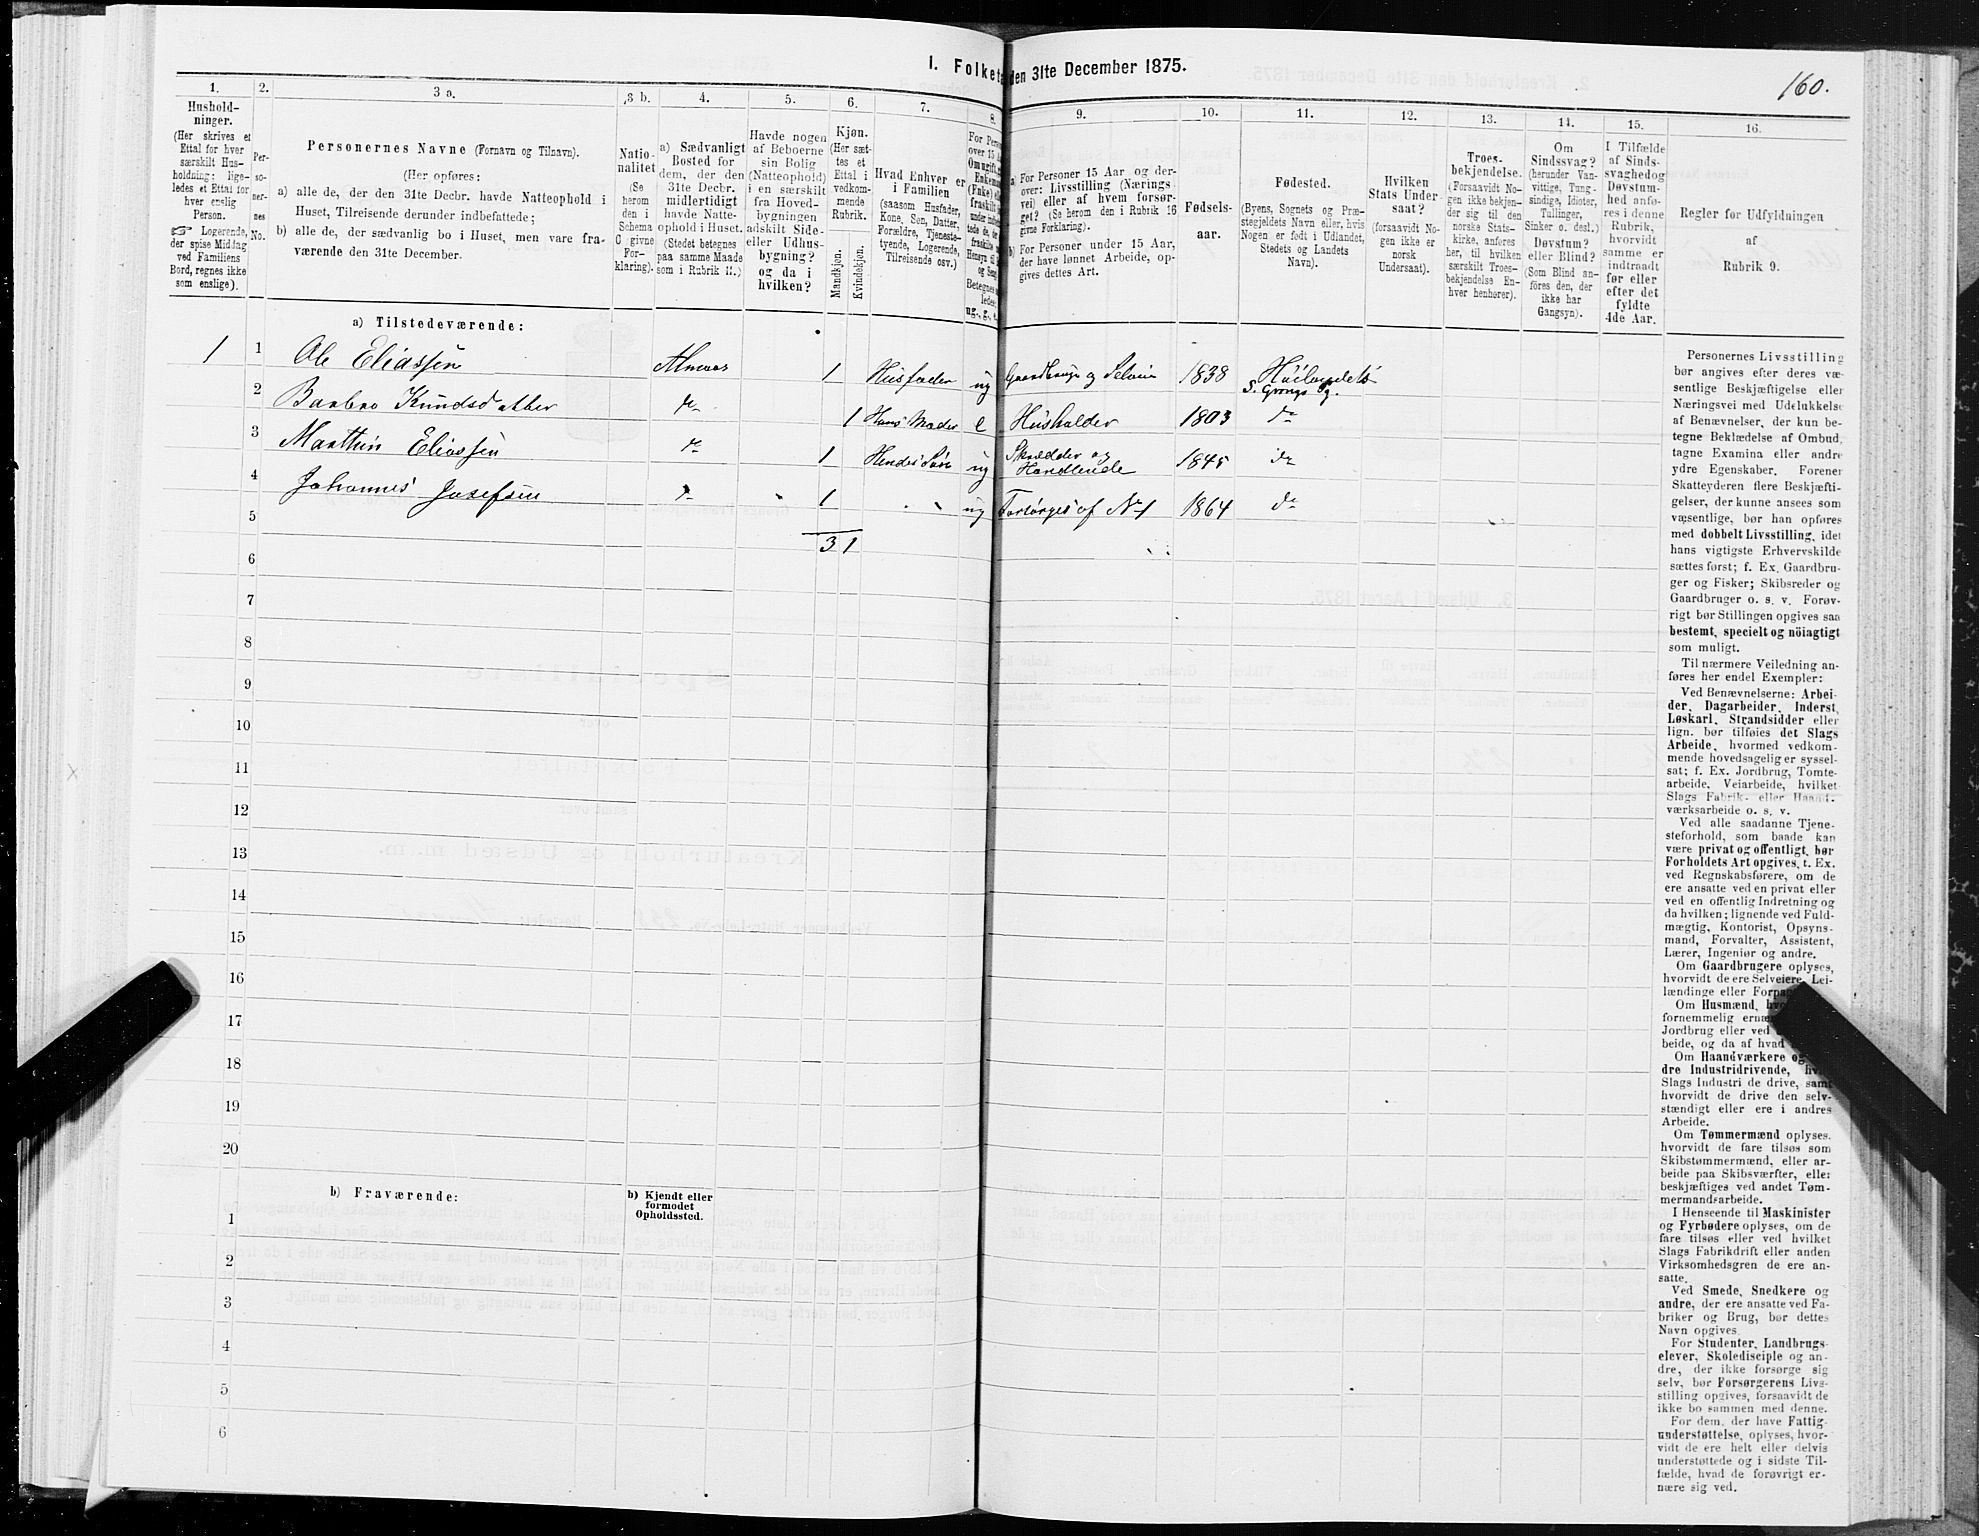 160.
I. Folketæ
den 31te December 1875.
1.
Hushold-
ninger.
(Her skrives et
Ettal for hver
særskilt Hus-
holdning; lige-
ledes et Ettal for
hver enslig
Person.
☞ Logerende,
der spise Middag
ved Familiens
Bord, regnes ikke
som enslige).
2.
Per-
so-
ner-
nes
No.
3 a.
Personernes Navne (Fornavn og Tilnavn).
(Her opføres:
a) alle de, der den 31te Decbr. havde Natteophold i
Huset, Tilreisende derunder indbefattede;
b) alle de, der sædvanlig bo i Huset, men vare fra-
værende den 31te December.
3 b.
Natio-
nalitet
(Se
herom
den i
Schema
C givne
For-
klaring).
4.
a) Sædvanligt
Bosted for
dem, der den
31te Decbr.
midlertidigt
havde Natte-
ophold i Huset.
(Stedet betegnes
paa samme Maade
som i Rubrik 11.)
5.
Havde nogen
af Beboerne
sin Bolig
(Natteophold)
i en særskilt
fra Hoved-
bygningen
adskilt Side-
eller Udhus-
bygning?
og da i
hvilken?
6.
Kjøn.
(Her sæt-
tes et
Ettal i
vedkom-
mende
Rubrik.
Mandkjøn.
Kvindekjøn.
7.
Hvad Enhver er
i Familien
(saasom Husfader,
Kone, Søn, Datter,
Forældre, Tjeneste-
tyende, Logerende,
Tilreisende osv.)
8.
For Perso
over 15 A
Om ugift, g
Enkema
(Enke) elle
fraskilt
ug., g., e.
9.
a) For Personer 15 Aar og der-
over: Livsstilling (Nærings-
vei) eller af hvem forsør-
get? (Se herom den i Rubrik 16
givne Forklaring).
b) For Personer under 15 Aar,
der have lønnet Arbeide, op-
gives dettes Art.
10.
Fødsels-
aar.
11.
Fødested.
(Byens, Sognets og Præ-
stegjeldets Navn eller, hvis
Nogen er født i Udlandet,
Stedets og Landets
Navn).
12.
Hvilken
Stats Under-
saat?
(forsaavidt No-
gen ikke er
norsk
Undersaat).
13.
Troes-
bekjendelse.
(Forsaavidt No-
gen ikke bekjen-
der sig til den
norske Stats-
kirke, anføres
her, til hvilken
særskilt Troes-
bekjendelse En-
hver henhører).
14.
Om
Sindssvag?
(herunder Van-
vittige, Tung-
sindige, Idioter,
Tullinger,
Sinker o. desl.)
Døvstum?
eller Blind?
(Som Blind an-
föres den, der
ikke har
Gangsyn).
15.
I Tilfælde
af Sinds-
svaghed og
Døvstum-
hed anfø-
res i denne
Rubrik,
hvorvidt
samme er
indtraadt
før eller
efter det
fyldte
4de Aar.
16.
Regler for Udfyldningen
af
Rubrik 9.
a) Tilstedeværende:
1 1 Ole Eliassen Almaas 1 Husfader ug Gaardbruge og Selveier 1838 Høilandets S. Grongs Pg.
2 Barbro Knudsdatter do 1 Hans Moder e Husholder 1803 do
3 Marthin Eliassen do 1 Hendes Søn ug Skrædder og Handlende 1845 do
4 Johannes Josefsen do 1 ug Forsørges af No 1 1864 do
5
3 1
6
7
8
9
10
11
12
13
14
15
16
17
18
19
20
b) Fraværende:
b) Kjendt eller
formodet
Opholdssted.
1
2
3
4
5
6
Personernes Livsstilling
bør angives efter deres væ-
sentlige Beskjæftigelse eller
Næringsvei med Udelukkelse
af Benævnelser, der kun be-
tegne Beklædelse af Ombud,
tagne Examina eller andre
ydre Egenskaber. Forener
Skatteyderen flere Beskjæfti-
gelser, der kunne ansees som
væsentlige, bør han opføres
med dobbelt Livsstilling, idet
hans vigtigste Erhvervskilde
sættes først; f. Ex. Gaardbru-
ger og Fisker; Skibsreder og
Gaardbruger o. s. v. Forøv-
rigt bør Stillingen opgives saa
bestemt, specielt og nöiagtigt
som muligt.
Til nærmere Veiledning an-
føres her endel Exempler:
Ved Benævnelserne: Arbei-
der, Dagarbeider, Inderst,
Løskarl, Strandsidder eller
lign. bør tilføies det Slags
Arbeide, hvormed vedkom-
mende hovedsagelig er syssel-
sat; f. Ex. Jordbrug, Tomte-
arbeide, Veiarbeide, hvilket
Slags Fabrik- eller Haand-
værksarbeide o. s. v.
Ved alle saadanne Tjene-
steforhold, som baade kan
være privat og offentligt, bør
Forholdets Art opgives, t. Ex.
ved Regnskabsførere, om de
ere ansatte ved en privat eller
ved en offentlig Indretning og
da hvilken; lignende ved Fuld-
mægtig, Kontorist, Opsyns-
mand, Forvalter, Assistent,
Lærer, Ingeniør og andre.
Om Gaardbrugere oplyses,
hvorvidt de ere Selveiere, Lei-
lændinge eller Forpa
Om Husmænd, hvo
fornemmelig ernæ
Jordbrug eller ved
beide, og da af hvad
Om Haandværkere og
dre Industridrivende, hvi
Slags Industri de drive, samt
hvorvidt de drive den selv-
stændigt eller ere i andres
Arbeide.
Om Tømmermænd oplyses,
hvorvidt de fare tilsøs som
Skibstømmermænd, eller ar-
beide paa Skibsværfter, eller
beskjæftiges ved andet Tøm-
mermandsarbeide.
I Henseende til Maskinister
og Fyrbødere oplyses, om de
fare tilsøs eller ved hvilket
Slags Fabrikdrift eller anden
Virksomhedsgren de ere an-
satte.
Ved Smede, Snedkere og
andre, der ere ansatte ved Fa-
briker og Brug, bør dettes
Navn opgives.
For Studenter, Landbrugs-
elever, Skoledisciple og an-
dre, der ikke forsørge sig
selv, bør Forsørgerens Livs-
stilling opgives, forsaavidt de
ikke bo sammen med denne.
For dem, der have Fattig-
understøttelse, oplyses, hvor-
vidt de ere helt eller delvis
understøttede og i sidste Til-
fælde, hvad de forøvrigt er-
nære sig ved.